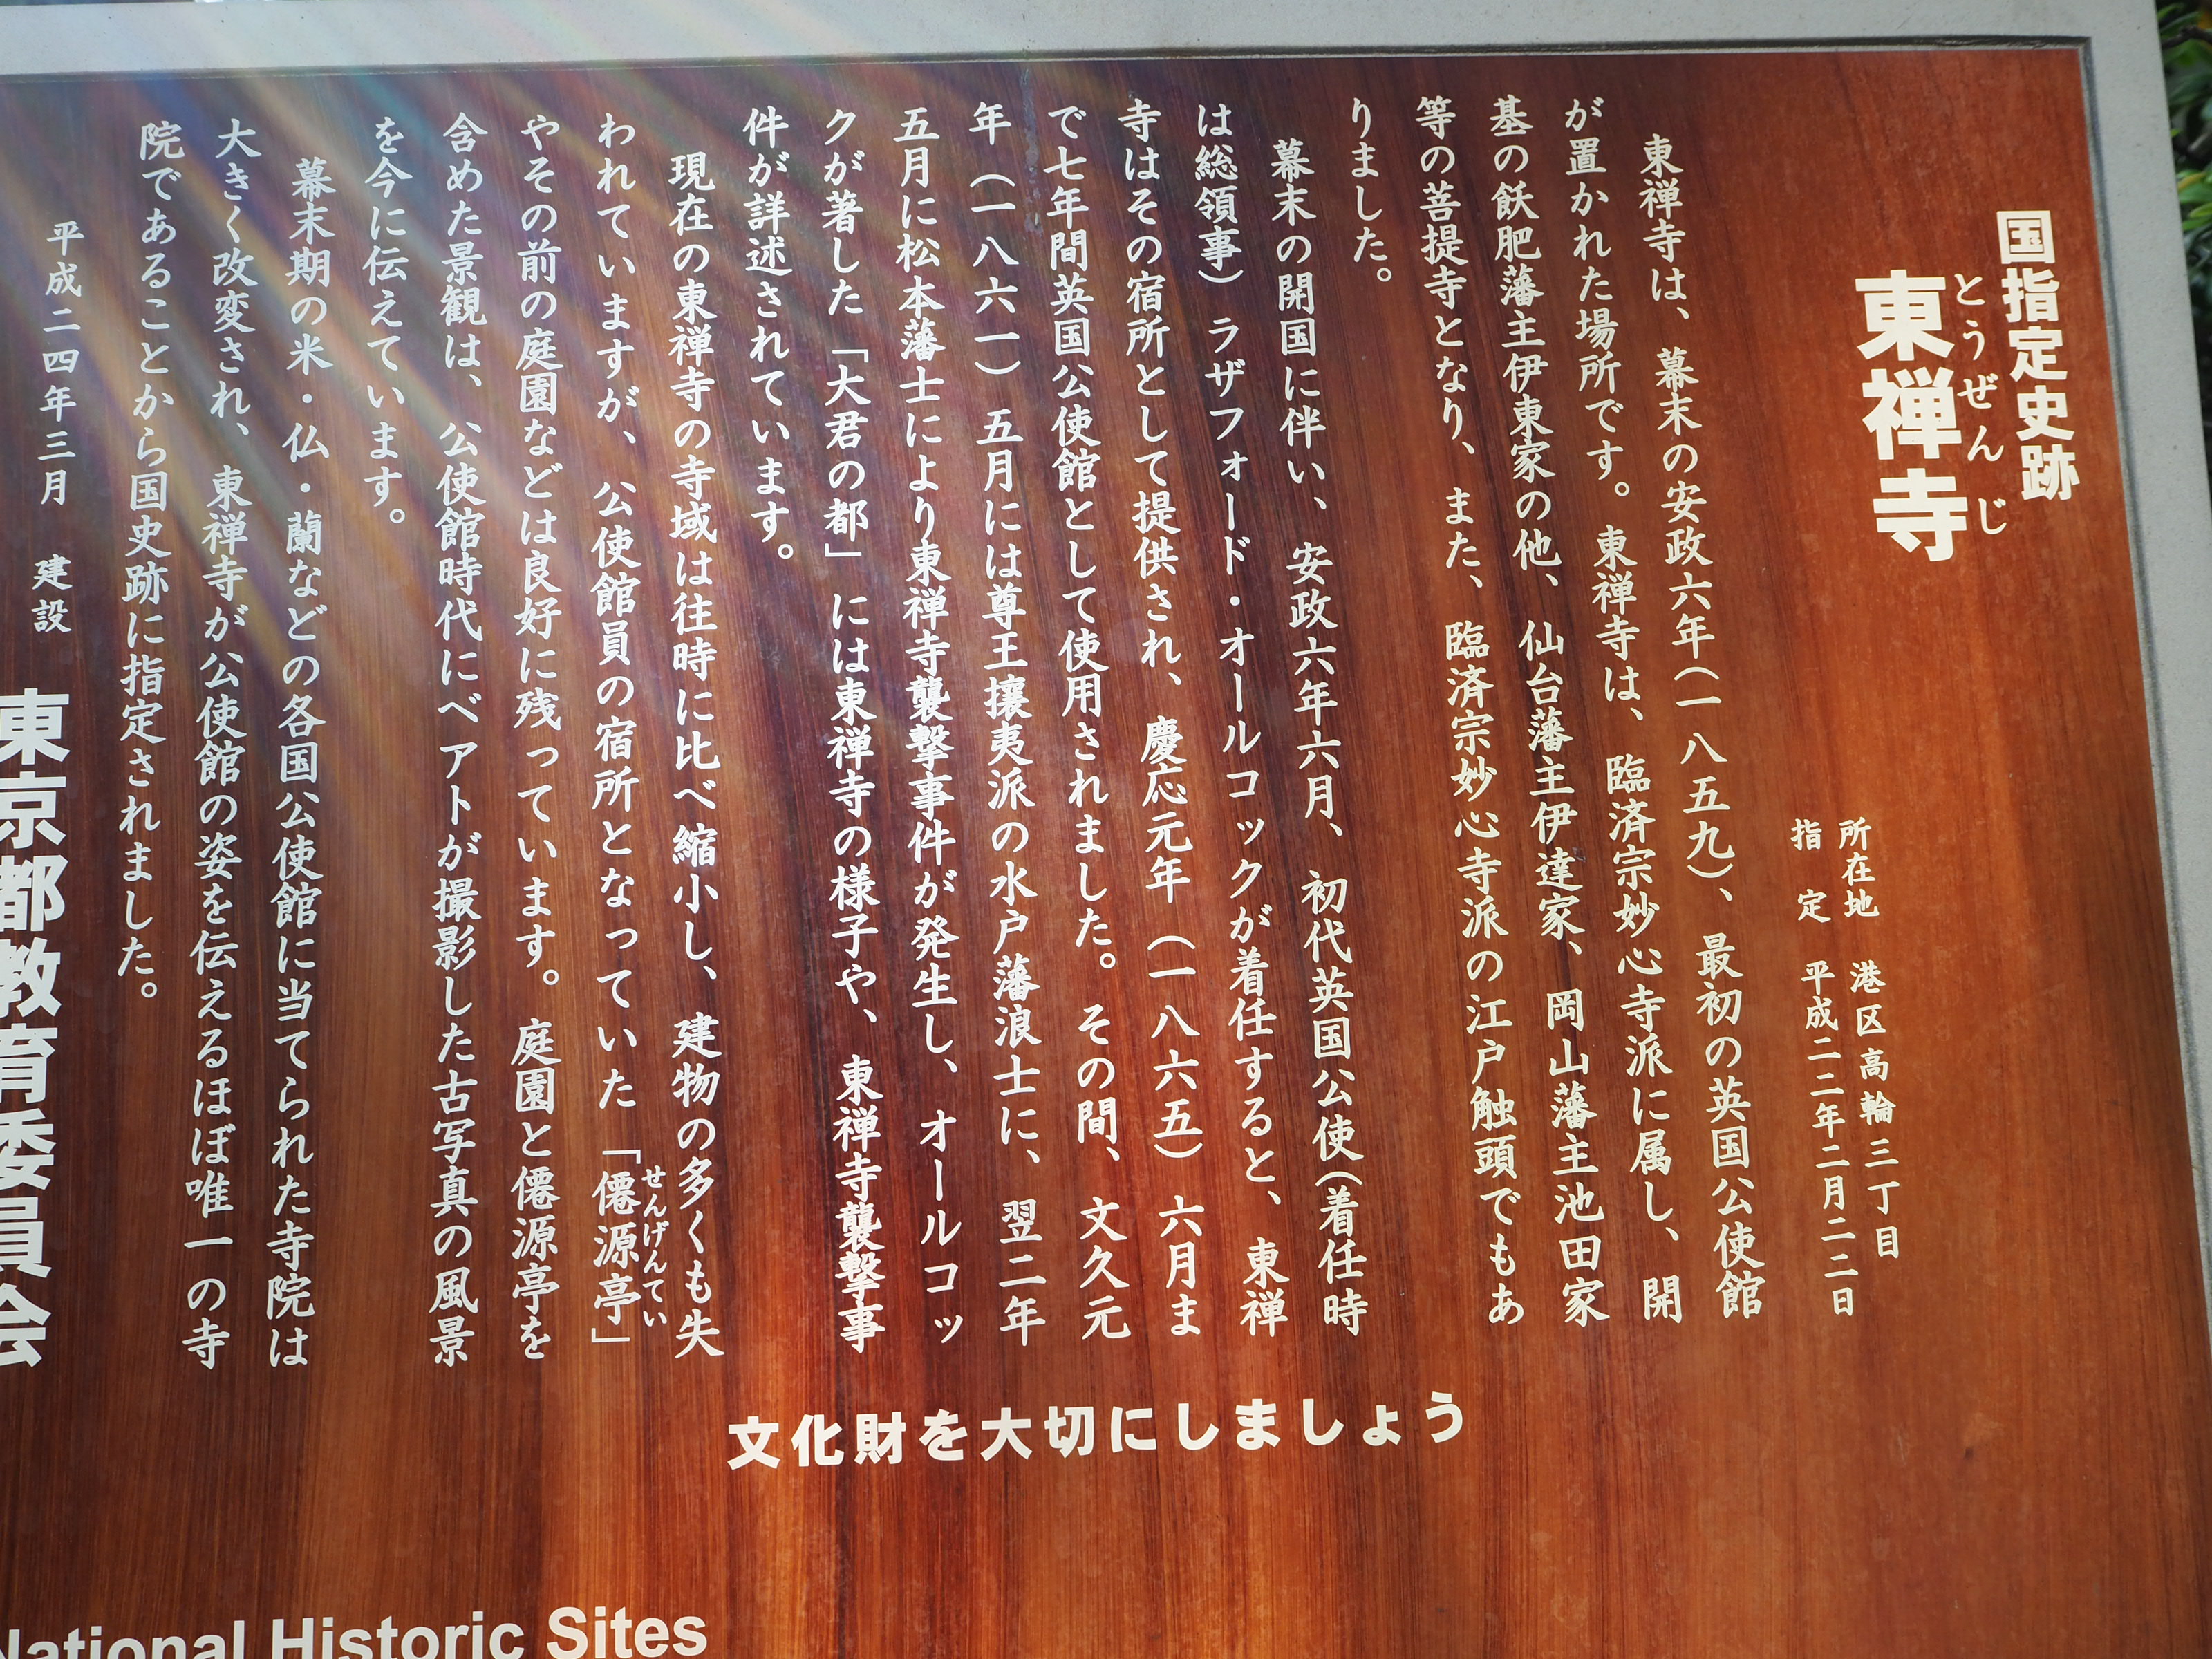 国指定史跡
とうぜんじ
東禅寺
所在地 港区高輪三丁目
指 定 平成二二年二月二二日
東禅寺は、幕末の安政六年（一八五九）、最初の英国公使館
が置かれた場所です。東禅寺は、臨済宗妙心寺派に属し、開
基の飫肥藩主伊東家の他、仙台藩主伊達家、岡山藩主池田家
等の菩提寺となり、また、臨済宗妙心寺派の江戸触頭でもあ
りました。
幕末の開国に伴い、安政六年六月、初代英国公使（着任時
は総領事）ラザフォード・オールコックが着任すると、東禅
寺はその宿所として提供され、慶応元年（一八六五）六月ま
で七年間英国公使館として使用されました。その間、文久元
年（一八六一）五月には尊王攘夷派の水戸藩浪士に、翌二年
五月に松本藩士により東禅寺襲撃事件が発生し、オールコッ
クが著した「大君の都」には東禅寺の様子や、東禅寺襲撃事
件が詳述されています。
現在の東禅寺の寺域は往時に比べ縮小し、建物の多くも失
われていますが、公使館員の宿所となっていた「僊源亭」
せんげんてい
やその前の庭園などは良好に残っています。庭園と僊源亭を
含めた景観は、公使館時代にベアトが撮影した古写真の風景
を今に伝えています。
幕末期の米・仏・蘭などの各国公使館に当てられた寺院は
大きく改変され、東禅寺が公使館の姿を伝えるほぼ唯一の寺
院であることから国史跡に指定されました。
平成二四年三月 建設
東京都教育委員会
文化財を大切にしましょう
National Historic Sites